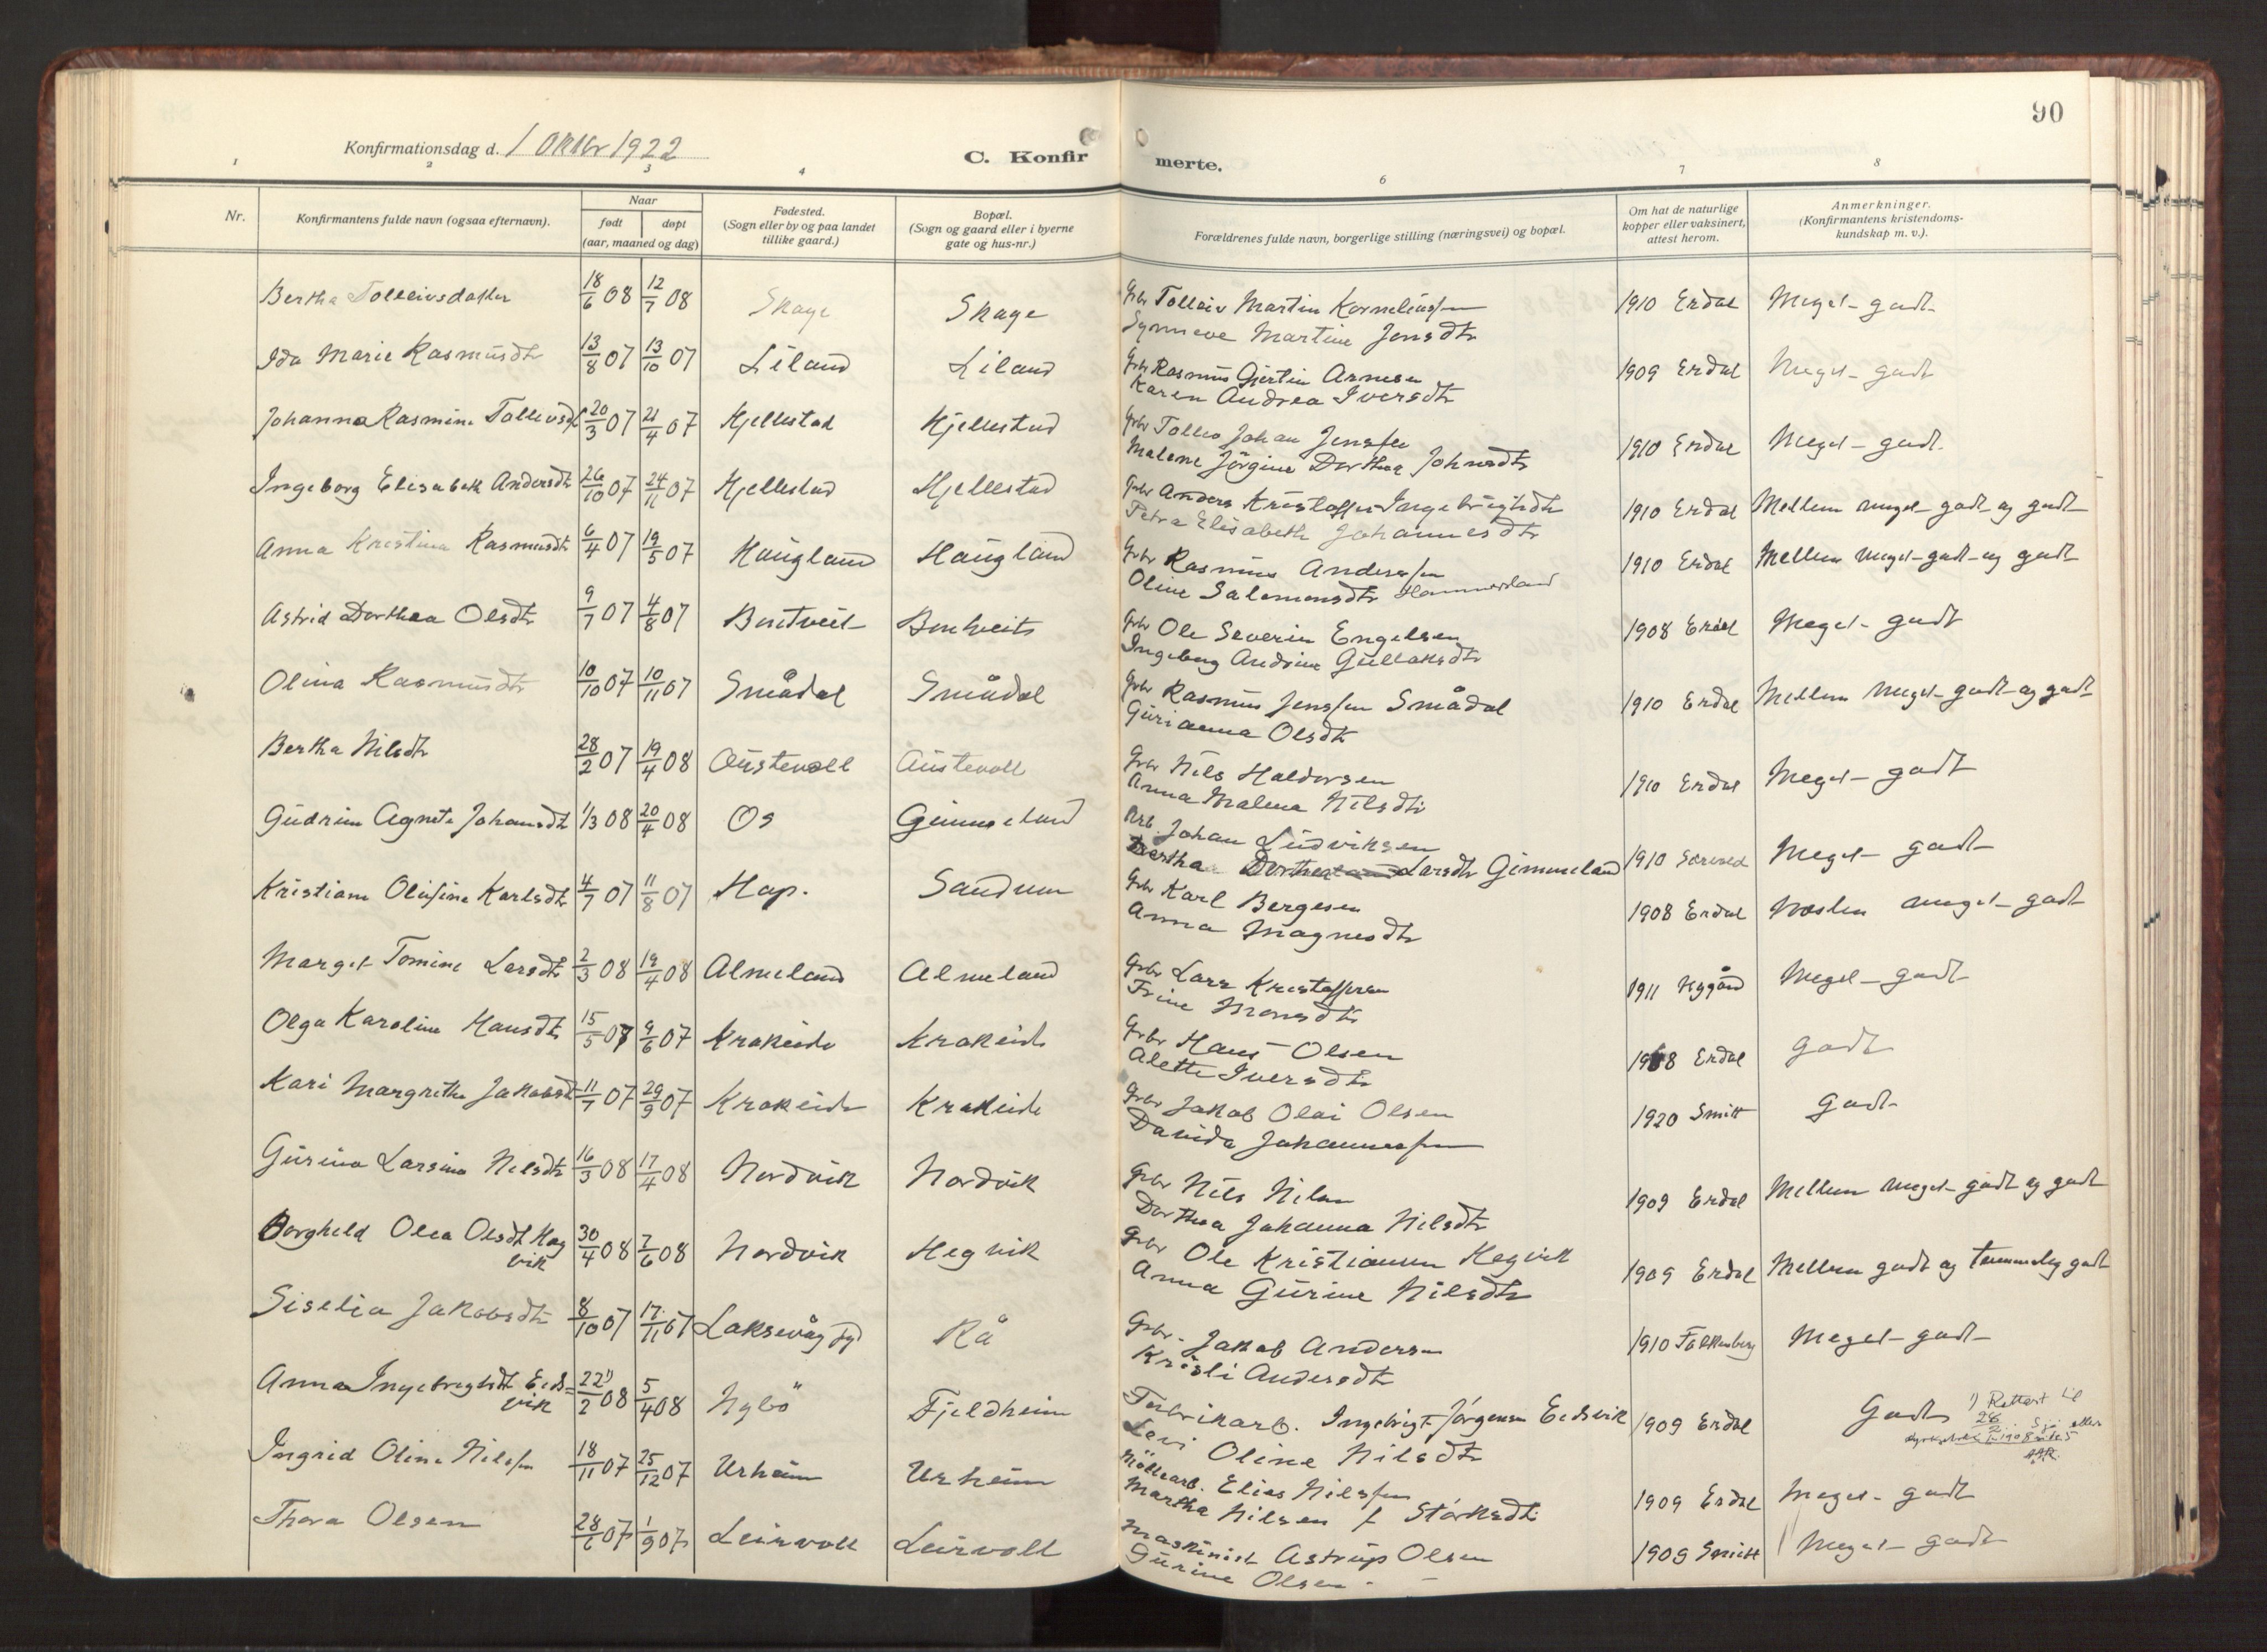 90
Konfirmationsdag d. 1 Oktbr 1922
C. Konfirmerte.
1 2 3 4 6 7 8
Nr.
Konfirmantens fulde navn (ogsaa efternavn).
Naar
født døpt
(aar, maaned og dag)
Fødested.
(Sogn eller by og paa landet
tillike gaard.)
Bopæl.
(Sogn og gaard eller i byerne
gate og hus-nr.)
Forældrenes fulde navn, borgerlige stilling (næringsvei) og bopæl.
Om hat de naturlige
kopper eller vaksinert,
attest herom.
Anmerkninger.
(Konfirmantens kristendoms-
kundskap m. v.).
Bertha Tolleivsdatter 18/6 08 12/7 08 Skage Skage Grbr Tolleiv Martin Kornelius­sen 1910 Erdal Meget godt
Synneve Martine Jensdtr
Ida Marie Rasmusdtr 13/8 07 13/10 07 Liland Liland Grbr Rasmus Gjertin Arnesen 1909 Erdal Meget godt
Karen Andrea Iversdtr
Johanna Rasmine Tollevsdt 20/3 07 21/4 07 Kjellestad Kjellestad Grbr Tollev Johan Jenssen 1910 Erdal Meget godt
Malene Jörgine Dorthea Johnsdtr
Ingeborg Elisabeth Andersdtr 26/10 07 24/11 07 Hjellestad Hjellestad Grbr Anders Kristoffer Ingebrigtsdtr 1910 Erdal Mellem meget godt og godt
Petra Elisabeth Johannesdtr
Anna Kristina Rasmusdtr 6/4 07 19/5 07 Haugland Haugland Grbr Rasmus Anderssen 1910 Erdal Mellem meget godt og godt
Oline Salomonsdtr Hammersland
Astrid Dorthea Olsdtr 9/7 07 4/8 07 Bontveit Bontveit Grbr Ole Severin Engelsen 1908 Erdal Meget godt
Ingeborg Andrine Gullaksdtr
Olina Rasmusdtr 10/10 07 10/11 07 Smådal Smådal Grbr Rasmus Jenssen Smådal 1910 Erdal Mellem meget godt og godt
Gurianna Olsdtr
Bertha Nilsdtr 28/2 07 19/4 08 Austevoll Austevoll Grbr Nils Haldorsen 1910 Erdal Meget godt
Anna Malena Nilsdtr
Gudrun Agneta Johansdtr 1/3 08 20/4 08 Os Gimmeland Arb. Johan Ludviksen 1910 Meget godt
Bertha Dorthea Larsdtr Gimmeland
Kristiane Olufine Karlsdtr 4/7 07 11/8 07 Hop. Sandven Grbr Karl Bergesen 1908 Erdal Næsten meget godt
Anna Magnesdtr
Marget Tomine Larsdtr 2/3 08 19/4 08 Almeland Almeland Grbr Lars Kristoffersen 1911 Nygård Meget godt
Trine Monsdtr
Olga Karoline Hansdtr 15/5 07 9/6 07 Krakeide Krakeide Grbr Hans Olsen 1908 Erdal Godt
Alette Iversdtr
Kari Margrethe Jakobsdt 11/7 07 29/9 07 Krokeide Krokeide Grbr Jakob Olai Olsen 1920 Smitt Godt
Davida Johannessen
Gurina Larsina Nilsdtr 16/3 08 17/4 08 Nordvik Nordvik Grbr Nils Nilsen 1909 Erdal Mellem meget godt og godt
Dorthea Johanna Nilsdtr
Borghild Olea Olsdt Heg 30/4 08 7/6 08 Nordvik Hegvik Grbr Ole Kristiansen Hegvik 1909 Erdal Mellem godt og temmelig godt
vik
Anna Gurine Nilsdtr
Siselia Jakobsdtr 8/10 07 17/11 07 Laksevåg Rå Grbr. Jakob Andersen 1910 Falkenberg Meget godt
Kristi Andersdtr
Anna Ingebregtsdt Eids- 22 1)/2 08 5/4 08 Nybö Fjeldheim Fabrikarb. Ingebrigt Jörgensen Eidsvik 1909 Erdal Godt 1) Rettet til
vik
28/2. AAR.
Lavi Oline Nilsdtr
Ingrid Oline Nilssen 18/11 07 25/12 07 Urheim Urheim Möllearb. Elias Nilssen 1909 Erdal Meget godt
Martha Nilsen f Störksdtr
Thora Olsen 28/6 07 1/9 07 Leirvoll Leirvoll Maskinist Astrup Olsen 1909 Smitt Meget godt
Gurine Olsen